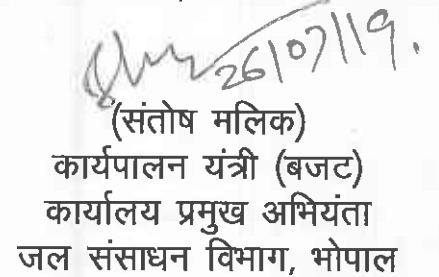 26/07/19.
(संतोष मलिक)
कार्यपालन यंत्री (बजट)
कार्यालय प्रमुख अभियंता
जल संसाधन विभाग, भोपाल